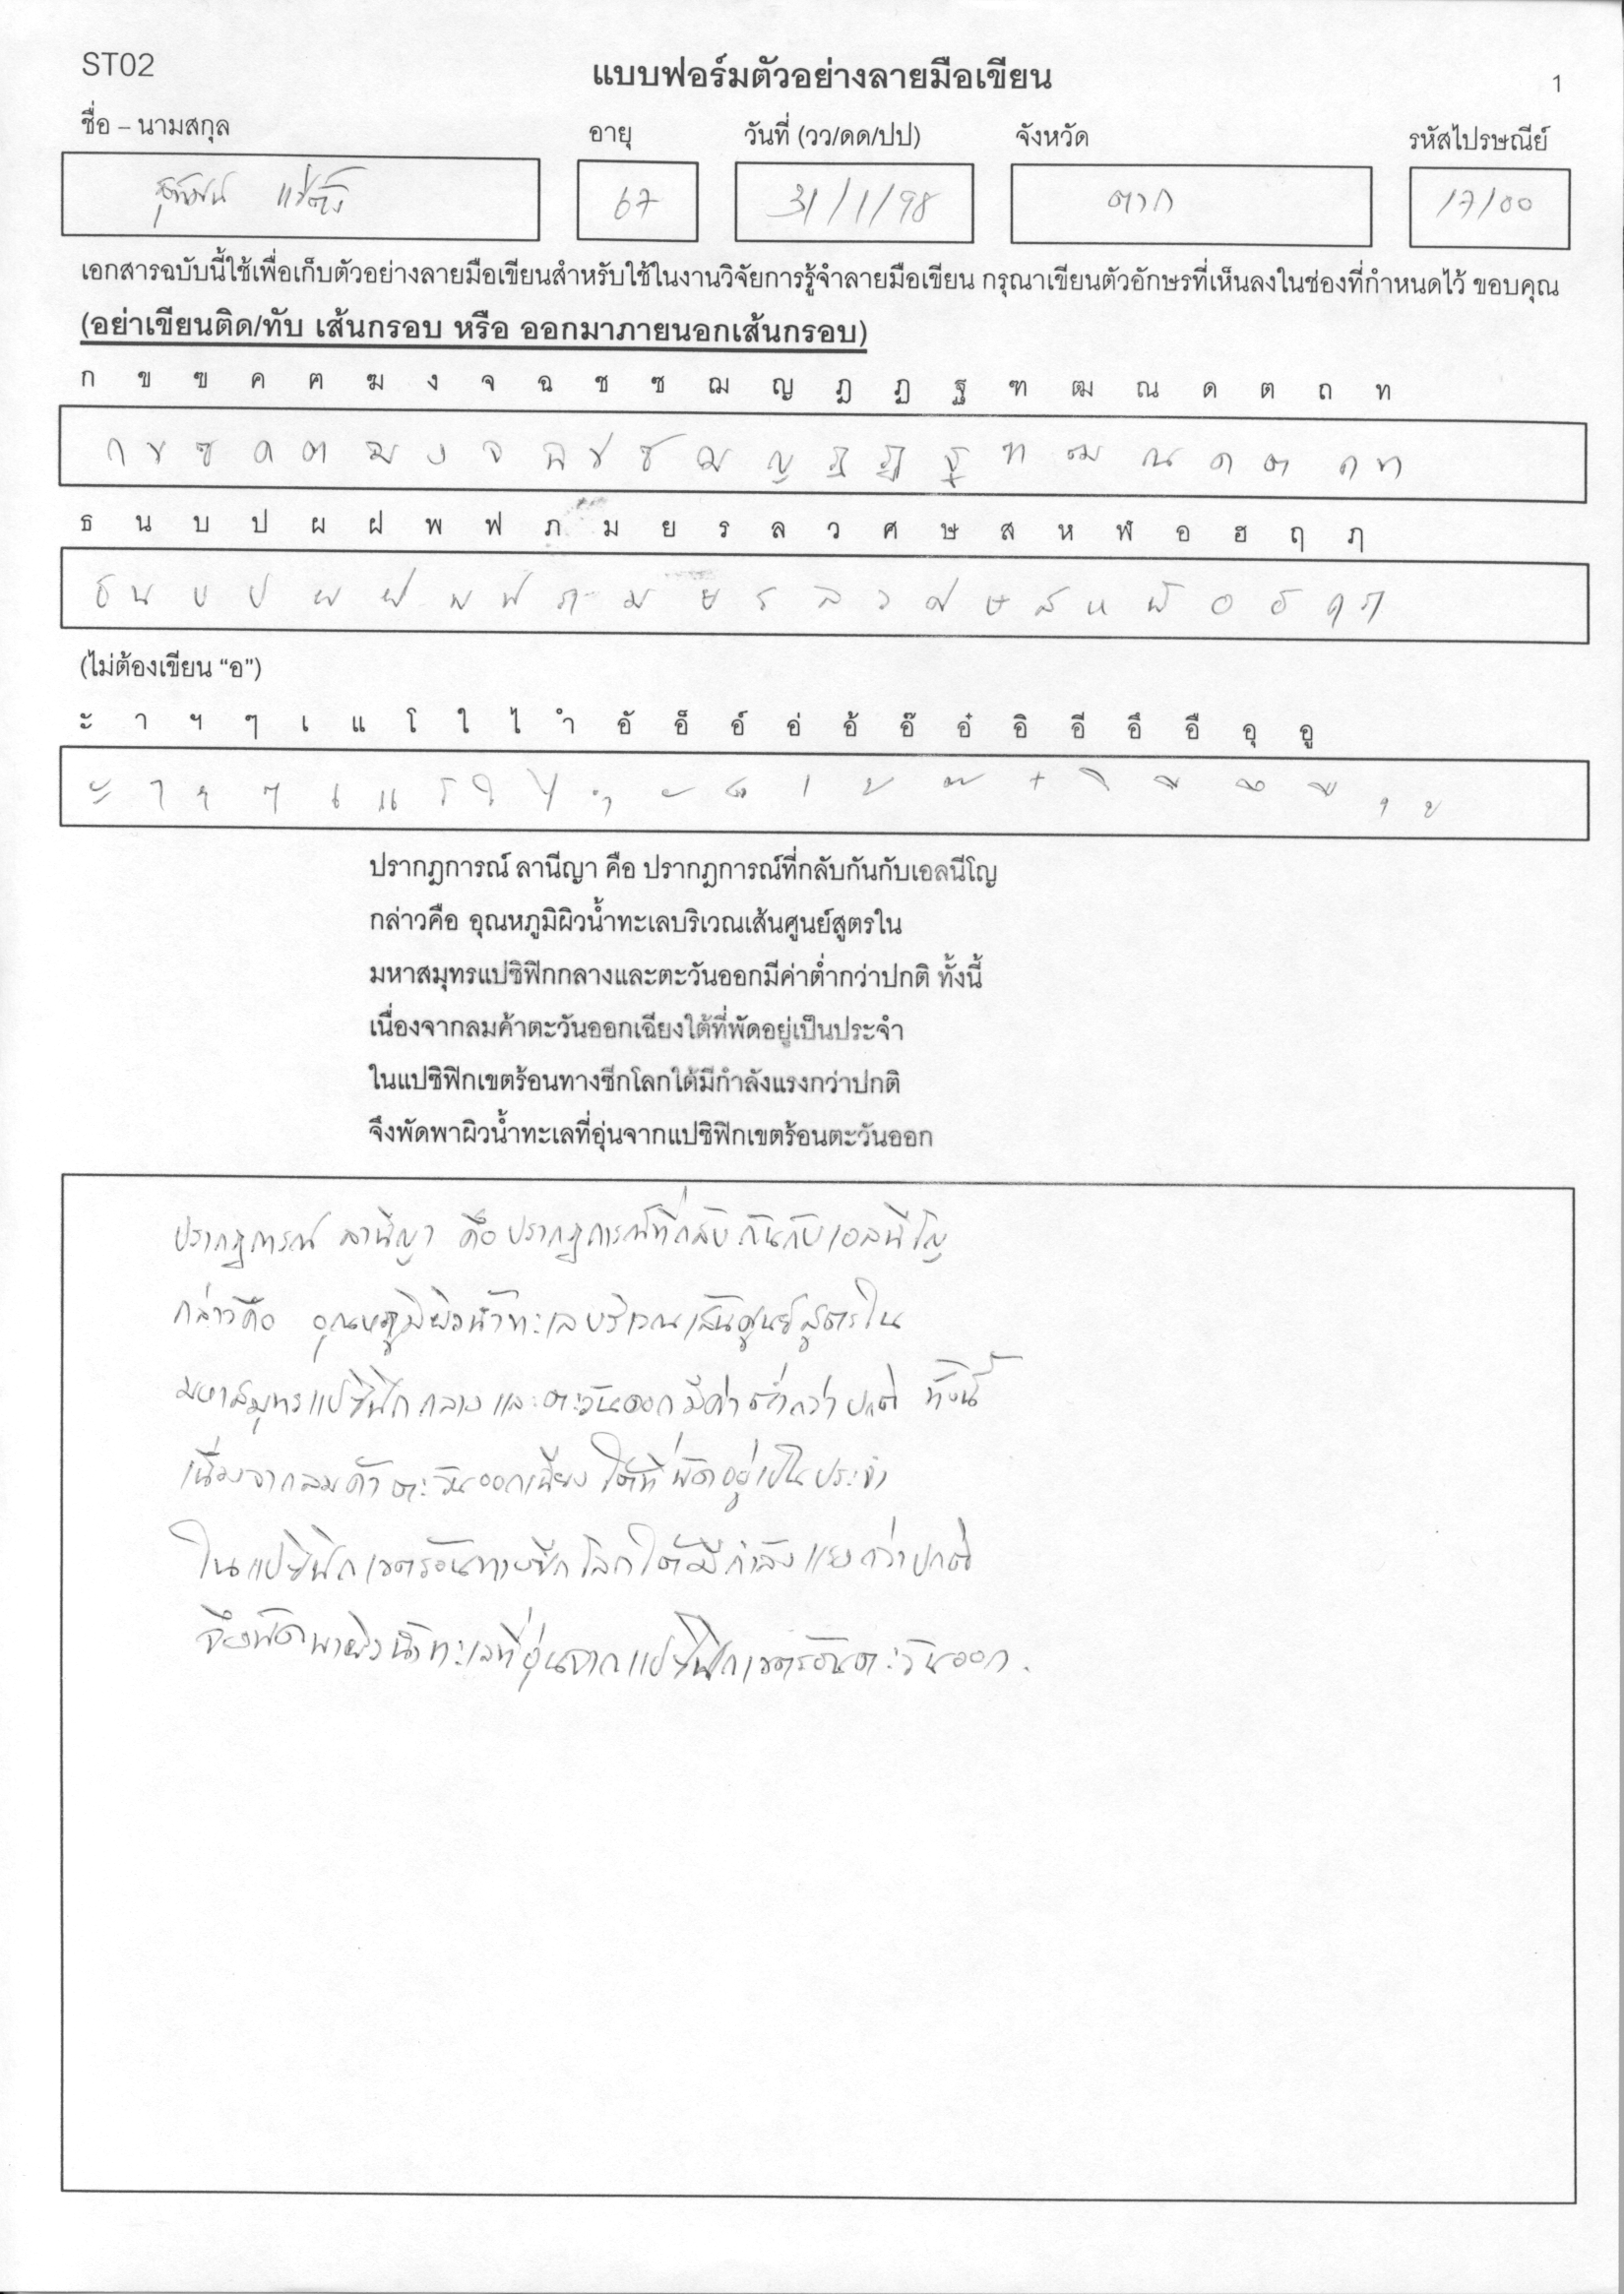 ST02
แบบฟอร์มตัวอย่างลายมือเขียน
1
ชื่อ – นามสกุล อายุ วันที่ (วว/ดด/ปป) จังหวัด รหัสไปรษณีย์
แซ่ตั้ง 67 31/1/98 ตาก 17100
เอกสารฉบับนี้ใช้เพื่อเก็บตัวอย่างลายมือเขียนสำหรับใช้ในงานวิจัยการรู้จำลายมือเขียน กรุณาเขียนตัวอักษรที่เห็นลงในช่องที่กำหนดไว้ ขอบคุณ
(อย่าเขียนติด/ทับ เส้นกรอบ หรือ ออกมาภายนอกเส้นกรอบ)
ก ข ฃ ค ฅ ฆ ง จ ฉ ช ซ ฌ ญ ฎ ฏ ฐ ฑ ฒ ณ ด ต ถ ท
ก ข ฃ ค ฅ ฆ ง จ ฉ ช ซ ฌ ญ ฎ ฏ ฐ ฑ ฒ ณ ด ต ถ ท
ธ น บ ป ผ ฝ พ ฟ ภ ม ย ร ล ว ศ ษ ส ห ฬ อ ฮ ฤ ฦ
ธ น บ ป ผ ฝ พ ฟ ภ ม ย ร ล ว ศ ษ ส ห ฬ อ ฮ ฤ ฦ
(ไม่ต้องเขียน “อ”)
ะ า ฯ ๆ เ แ โ ใ ไ ำ อั อ็ อ์ อ่ อ้ อ๊ อ๋ อิ อี อึ อื อุ อู
ะ า ฯ ๆ เ แ โ ใ ไ ำ ั ็ ่ ้ ๊ ๋ ิ ี ึ ื ุ ู
ปรากฏการณ์ ลานีญา คือ ปรากฏการณ์ที่กลับกันกับเอลนีโญ
กล่าวคือ อุณหภูมิผิวน้ำทะเลบริเวณเส้นศูนย์สูตรใน
มหาสมุทรแปซิฟิกกลางและตะวันออกมีค่าต่ำกว่าปกติ ทั้งนี้
เนื่องจากลมค้าตะวันออกเฉียงใต้ที่พัดอยู่เป็นประจำ
ในแปซิฟิกเขตร้อนทางซีกโลกใต้มีกำลังแรงกว่าปกติ
จึงพัดพาผิวน้ำทะเลที่อุ่นจากแปซิฟิกเขตร้อนตะวันออก
ปรากฏการณ์ ลานีญา คือ ปรากฏการณ์ที่กลับกันกับเอลนีโญ
กล่าวคือ อุณหภูมิผิวน้ำทะเลบริเวณเส้นศูนย์สูตรใน
มหาสมุทรแปซิฟิกกลางและตะวันออกมีค่าต่ำกว่าปกติ ทั้งนี้
เนื่องจากลมค้าตะวันออกเฉียงใต้ที่พัดอยู่เป็นประจำ
ในแปซิฟิกเขตร้อนทางซีกโลกใต้มีกำลังแรงกว่าปกติ
จึงพัดพาผิวน้ำทะเลที่อุ่นจากแปซิฟิกเขตร้อนตะวันออก.